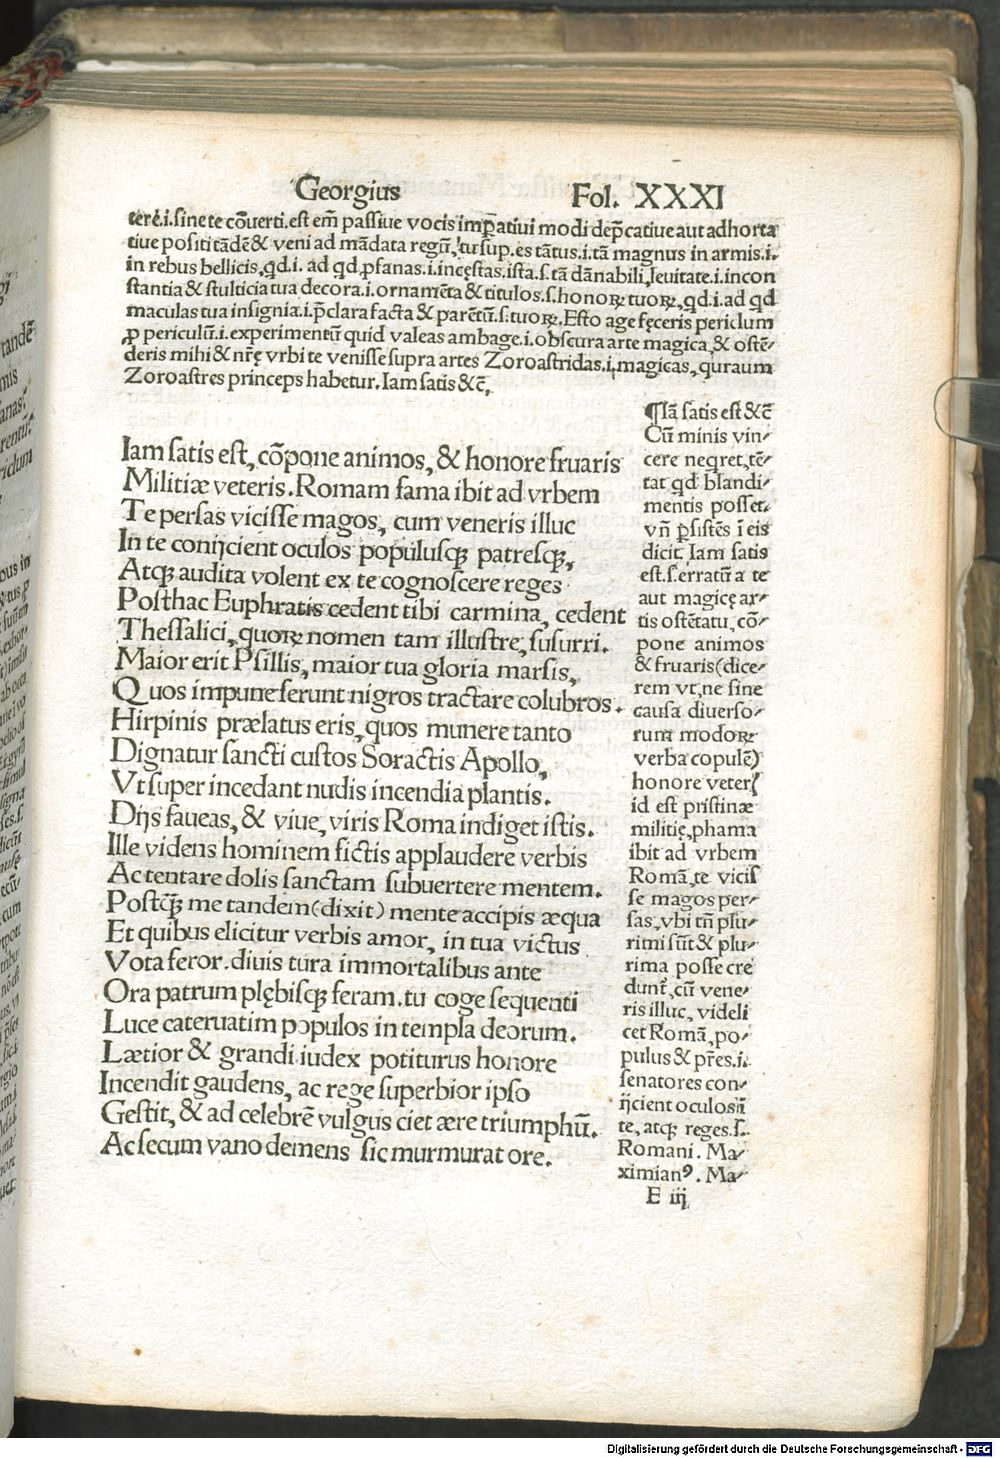 Georgius Fol. XXXI
terē.i.sine te cōuerti.est em̄ passiue vocis imp̄atiui modi dep̄catiue aut adhorta
tiue positi tādē & veni ad mādata regū, tu sup. es tātus.i.tā magnus in armis.i.
in rebus bellicis, qd.i. ad qd ꝓfanas.i.incęstas.ista.s.tā dānabili, leuitate.i.incon
stantia & stulticia tua decora.i.ornamēta & titulos.s.honoꝝ tuoꝝ, qd.i.ad qd
maculas tua insignia.i.p̄clara facta & parētū.s.tuoꝝ. Esto age fęceris periclum
ꝓ periculū.i.experimentū quid valeas ambage.i.obscura arte magica, & ostē⸗
deris mihi & nr̄ę vrbi te venisse supra artes Zoroastridas.i.magicas, quraum
Zoroastres princeps habetur. Iam satis &c̄,
Iam satis est, cōpone animos, & honore fruaris
Militiæ veteris. Romam fama ibit ad vrbem
Te persas vicisse magos, cum veneris illuc
In te conijcient oculos populusqꝫ patresqꝫ,
Atqꝫ audita volent ex te cognoscere reges
Posthac Euphratis cedent tibi carmina, cedent
Thessalici, quoꝝ nomen tam illustre, susurri.
Maior erit Psillis, maior tua gloria marsis,
Quos impune ferunt nigros tractare colubros.
Hirpinis prælatus eris, quos munere tanto
Dignatur sancti custos Soractis Apollo,
Vt super incedant nudis incendia plantis.
Dijs faueas, & viue, viris Roma indiget istis.
Ille videns hominem fictis applaudere verbis
Ac tentare dolis sanctam subuertere mentem.
Postqꝫ me tandem (dixit) mente accipis æqua
Et quibus elicitur verbis amor, in tua victus
Vota feror. diuis tura immortalibus ante
Ora patrum plębisqꝫ feram. tu coge sequenti
Luce cateruatim populos in templa deorum.
Lætior & grandi iudex potiturus honore
Incendit gaudens, ac rege superbior ipso
Gestit, & ad celebrē vulgus ciet ære triumphū.
Ac secum vano demens sic murmurat ore.
¶Iā satis est &c̄
Cū minis vin⸗
cere neqret, tē⸗
tat qd blandi⸗
mentis posset.
vn̄ p̄sistēs ī eis
dicit. Iam satis
est.s.erratū a te
aut magicę ar⸗
tis ostētatu, cō⸗
pone animos
& fruaris (dice⸗
rem vt, ne sine
causa diuerso⸗
rum modoꝝ
verba copulē)
honore veteris
id est pristinæ
militię, phama
ibit ad vrbem
Romā, te vicis
se magos per⸗
sas, vbi tn̄ plu⸗
rimi sūt & plu⸗
rima posse cre
dunt̄, cū vene⸗
ris illuc, videli
cet Romā, po⸗
pulus & pr̄es.i.
senatores con⸗
ijcient oculos ī
te, atqꝫ reges.s.
Romani. Ma⸗
ximianꝰ. Ma⸗
E iij
Digitalisierung gefördert durch die Deutsche Forschungsgemeinschaft - DFG